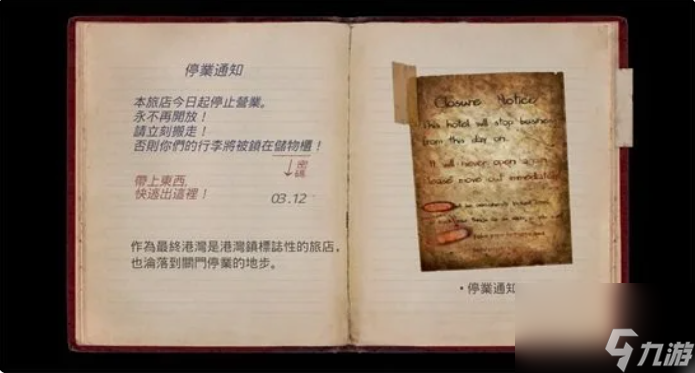 停業通知
本旅店今日起停止營業。
永不再開放！
請立刻搬走！
否則你們的行李將被鎖在儲物櫃！
密
碼
帶上東西,
快逃出這裡！
03.12
作為最終港灣是港灣鎮標誌性的旅店,
也淪落到關門停業的地步。
Closure Notice
This hotel will stop business
from this day on.
It will never open again
please move out immediately
•停業通知
九游